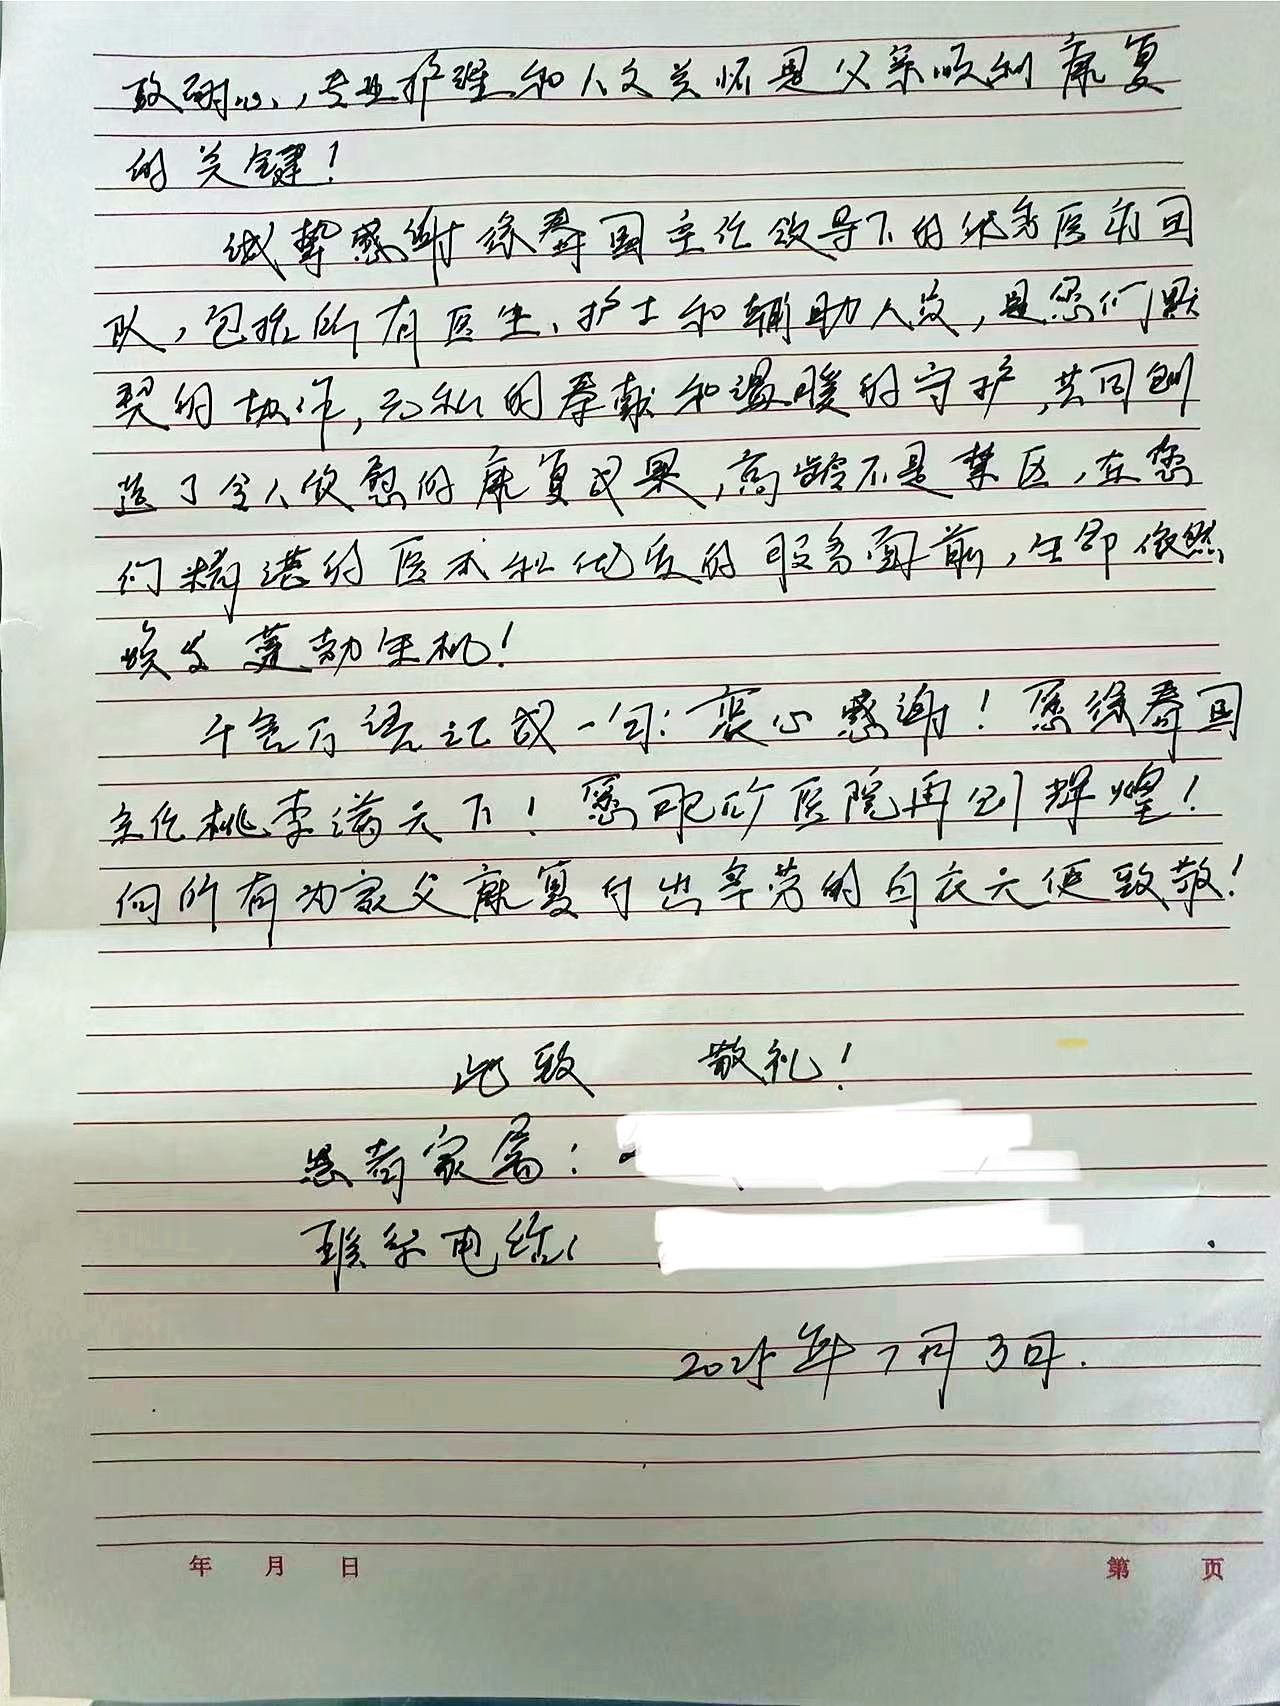 致耐心,专业护理和人文关怀是父亲顺利康复
的关键!
诚挚感谢徐春国主任领导下的优秀医疗团
队,包括所有医生、护士和辅助人员,是您们默
契的协作,无私的奉献和温暖的守护,共同创
造了令人欣慰的康复成果,高龄不是禁区,在您
们精湛的医术和优质的服务面前,生命依然
焕发蓬勃生机!
千言万语汇成一句:衷心感谢!愿徐春国
主任桃李满天下!愿 医院再创辉煌!
向所有为家父康复付出辛劳的白衣天使致敬!
此致 敬礼!
患者家属:
联系电话:
2025年7月3日.
年 月 日 第 页